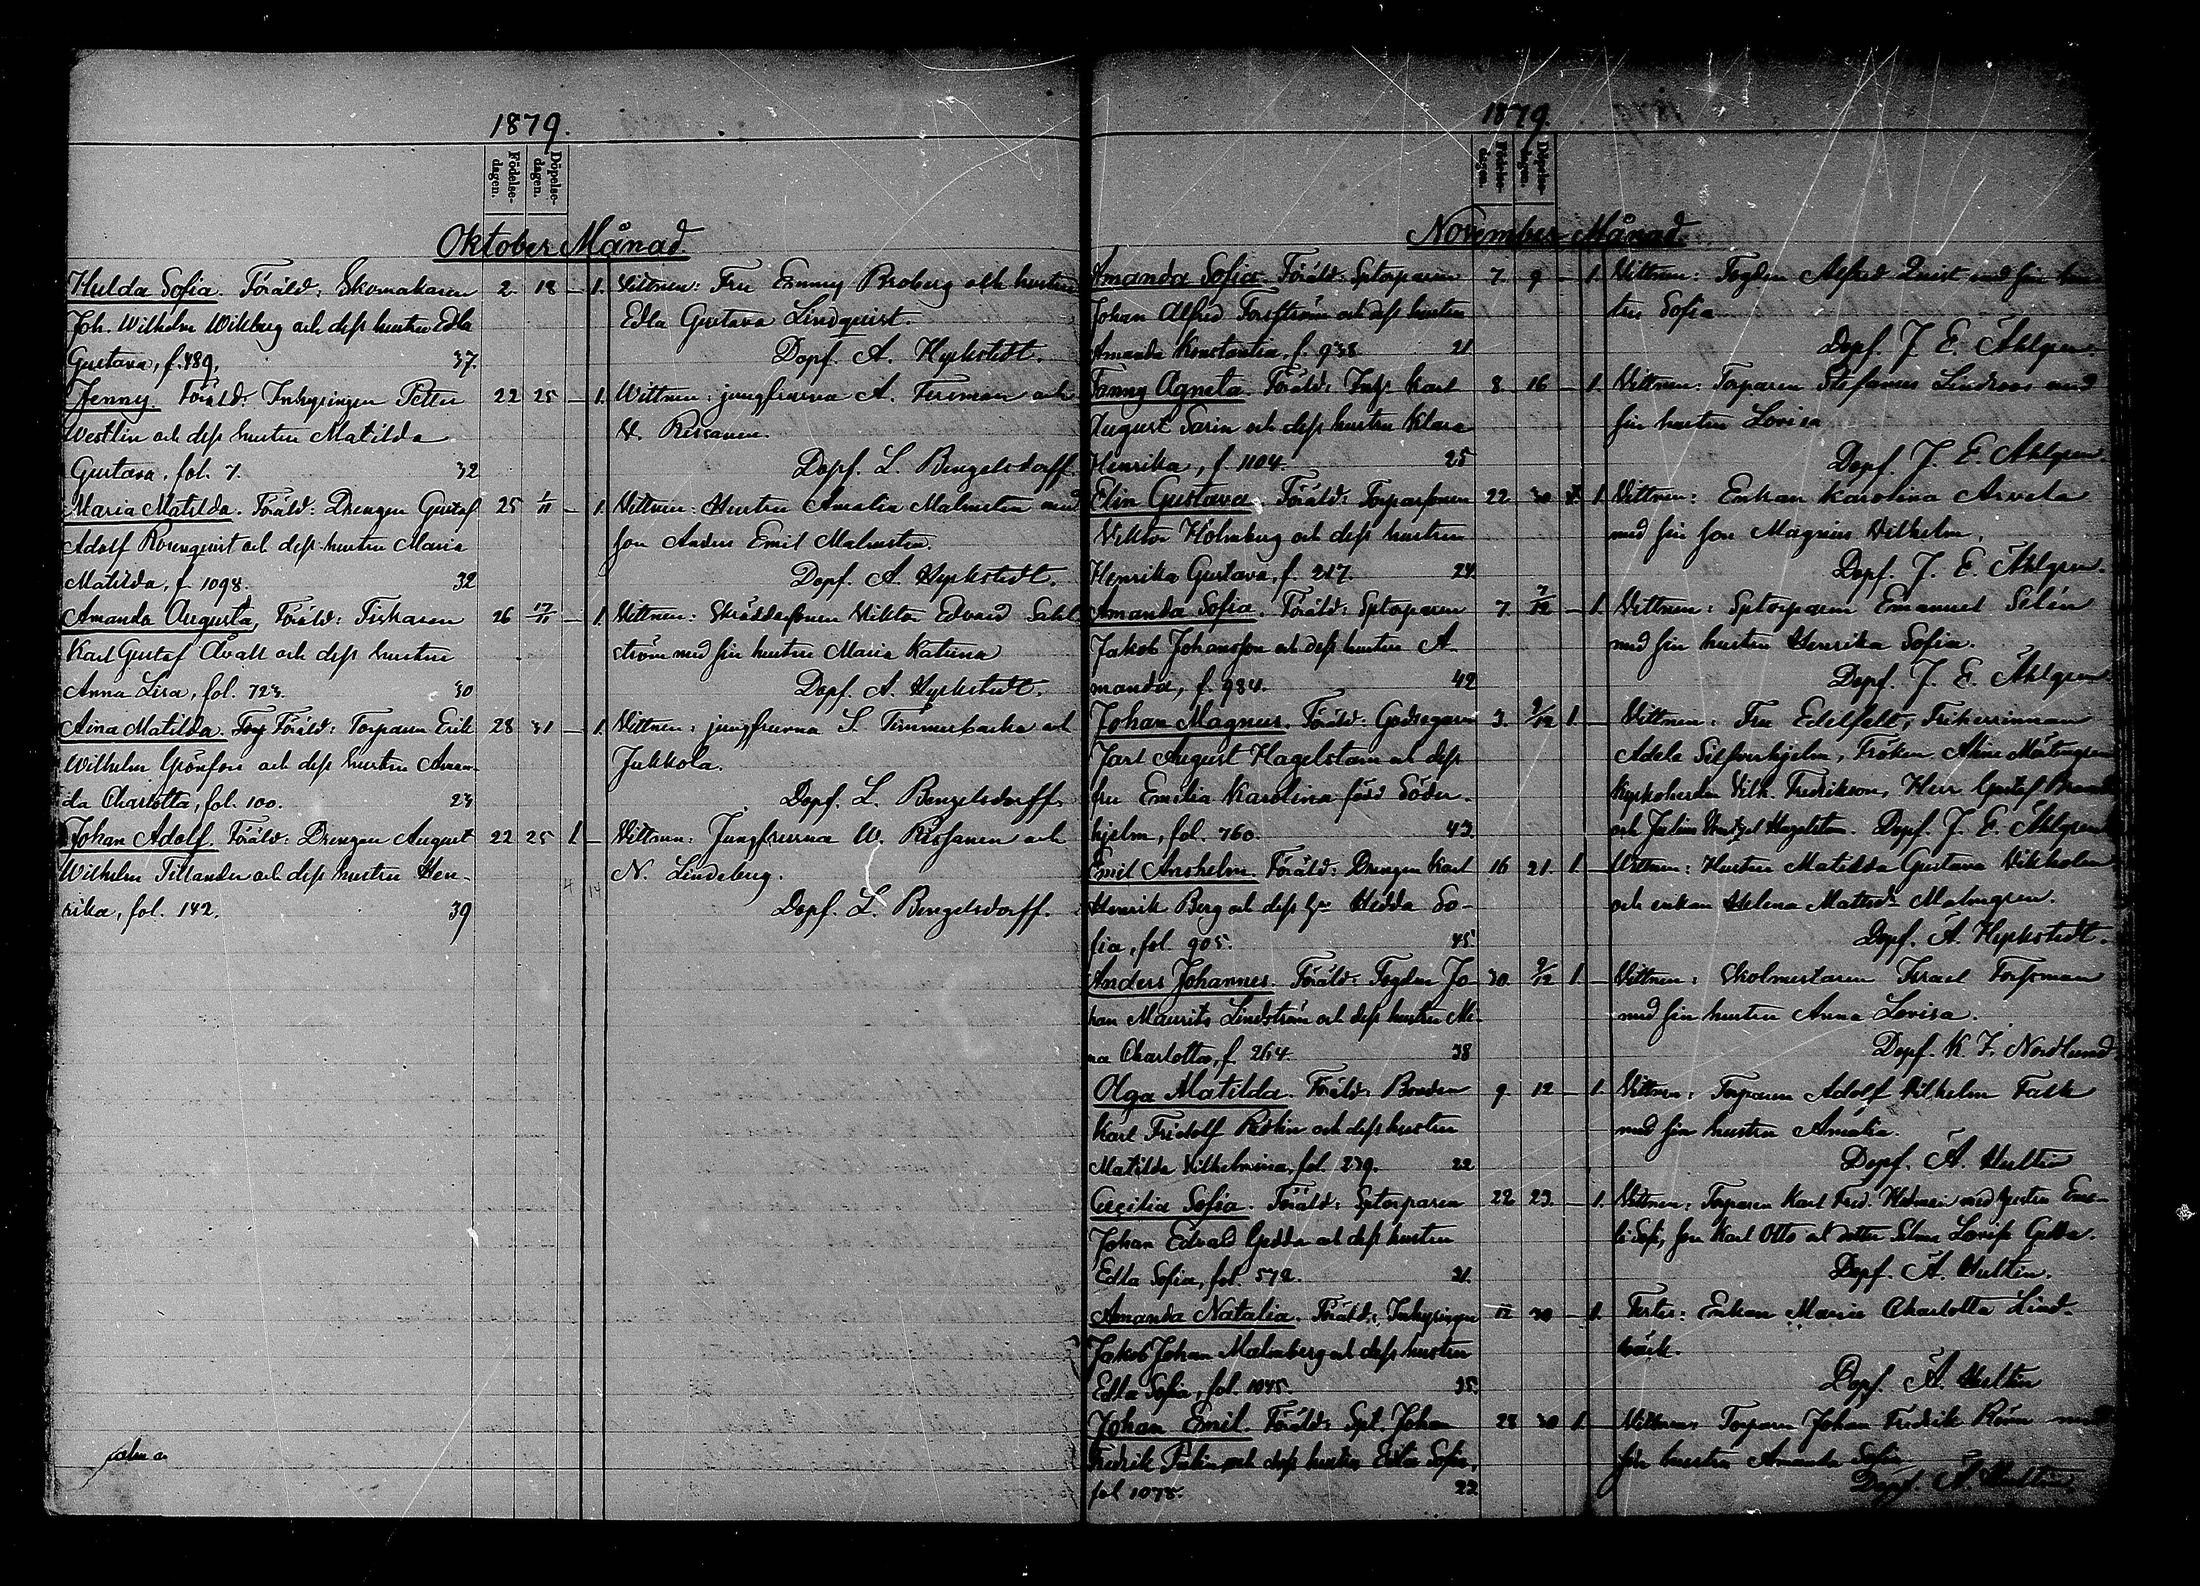 1879.
Födelse-dagen. Döpelse-dagen.
Oktober Månad.
Hulda Sofia. Föräld: Skomakaren 2. 18 — 1. Vittnen: Fru Emmy Broberg och hustru
Joh. Wilhelm Wikberg och dess hustru Edla Edla Gustava Lindquist.
Gustava, f. 489. 37. Döpf. A. Hyrkstedt.
Jenny. Föräld: Inhysingen Petter 22 25 — 1. Wittnen: jungfruarna A. Furman och
Westlin och dess hustru Matilda W. Rissanen.
Gustava, fol. 7. 32 Döpf. L. Bengelsdorff.
Maria Matilda. Föräld: Drengen Gustaf 25 1/11 — 1. Vittnen: Hustru Amalia Malmsten med
Adolf Rosenqvist och dess hustru Maria son Anders Emil Malmsten.
Matilda, f. 1098. 32 Döpf. A. Hyrkstedt.
Amanda Augusta, Föräld: Fiskaren 26 17/11 — 1. Vittnen: Skräddaresonen Viktor Edvard Sahl
Karl Gustaf Åvall och dess hustru ström med sin hustru Maria Katrina
Anna Lisa, fol. 723. 30 Döpf. A. Hyrkstedt.
Aina Matilda. Föräld: Torparen Erik 28 31 — 1. Vittnen: jungfruarna S. Timmerbacka och
Wilhelm Grönfors och dess hustru Aman- Jukkola.
da Charlotta, fol. 100. 23 Döpf. L. Bengelsdorff.
Johan Adolf. Föräld: Drengen August 22 25 1. — Vittnen: Jungfruarna W. Rissanen och
Wilhelm Tillander och dess hustru Hen- 4 14 N. Lindeberg.
rika, fol. 142. 39 Döpf. L. Bengelsdorff.
1879.
Födelse-dagen. Döpelse-dagen.
November Månad.
Amanda Sofia. Föräld: Sptorparen 7. 9 — 1. Vittnen: Fogden Alfred Quist med sin hus
Johan Alfred Forsström och dess hustru tru Sofia
Amanda Konstantia, f. 938. 21 Döpf. J. E. Ahlgren.
Fanny Agneta. Föräld: Inhys. Karl 8 16 — 1. Vittnen: Torparen Stefanus Lindroos med
August Sarin och dess hustru Klara sin hustru Lovisa
Henrika, f. 1104. 25 Döpf. J. E. Ahlgren
Elin Gustava. Föräld: Torparsonen 22 30 1. Vittnen: Enkan Karolina Arvela
Viktor Holmberg och dess hustru med sin son Magnus Vilhelm.
Henrika Gustava, f. 217. 24. Döpf. J. E. Ahlgren.
Amanda Sofia. Föräld: Sptorparen 7. 7/12 — 1. Vittnen: Sptorparen Emanuel Selén
Jakob Johansson och dess hustru A- med sin hustru Henrika Sofia.
manda, f. 984. 42 Döpf. J. E. Ahlgren
Johan Magnus. Föräld: Godsegaren 3. 9/12 1. — Vittnen: Fru Edelfelt, Friherrinnan
Jarl August Hagelstam och dess Adela Silfverhjelm, Fröken
fru Emilia Karolina född Söder- Kyrkoherden Vilh. Fredrikson, Herr Gustaf
hjelm, fol. 760. 43. och Julius Hagelstam. Döpf. J. E. Ahlgren
Emil Anshelm. Föräld: Drengen Karl 16 21. 1. — Vittnen: Hustru Matilda Gustava Vikholm
Henrik Berg och dess hu Hedda So- och enkan Helena Matilda Malmgren.
fia, fol. 905. 45. Döpf. A. Hyrkstedt.
Anders Johannes. Föräld: Fogden Jo- 30. 9/12 1. — Vittnen: Skolmestaren Israel Forsman
han Maurits Lindström och dess hustru Mi- med sin hustru Anna Lovisa.
na Charlotta, f. 264. 38 Döpf. K. F. Nordlund
Olga Matilda. Föräld: Bonden 9. 12 — 1. Vittnen: Torparen Adolf Vilhelm Falk
Karl Fridolf Robin och dess hustru med sin hustru Amalia.
Matilda Vilhelmina, fol. 239. 22 Döpf. A. Hultin
Cecilia Sofia. Föräld: Sptorparen 22 23. — 1. Vittnen: Torparen Karl Fred. Holmen med hustru Emi-
Johan Edvard Gedda och dess hustru li Sofi, son Karl Otto och dotter Selma Lovisa Gedda.
Edla Sofia, fol. 572. 21. Döpf. A. Hultin.
Amanda Natalia. Föräld: Inhysingen 12 30 — 1. Testes: Enkan Maria Charlotta Lind-
Jakob Johan Malmberg och dess hustru bäck.
Edla Sofia, fol. 1045. 35. Döpf. A. Hultin
Johan Emil. Föräld: Spt. Johan 28 30 1. Vittnen: Torparen Johan Fredrik Rönn med
Fredrik och dess hustru Edla Sofia, sin hustru Amanda Sofia
fol 1078. 22 Döpf. A. Hultin.